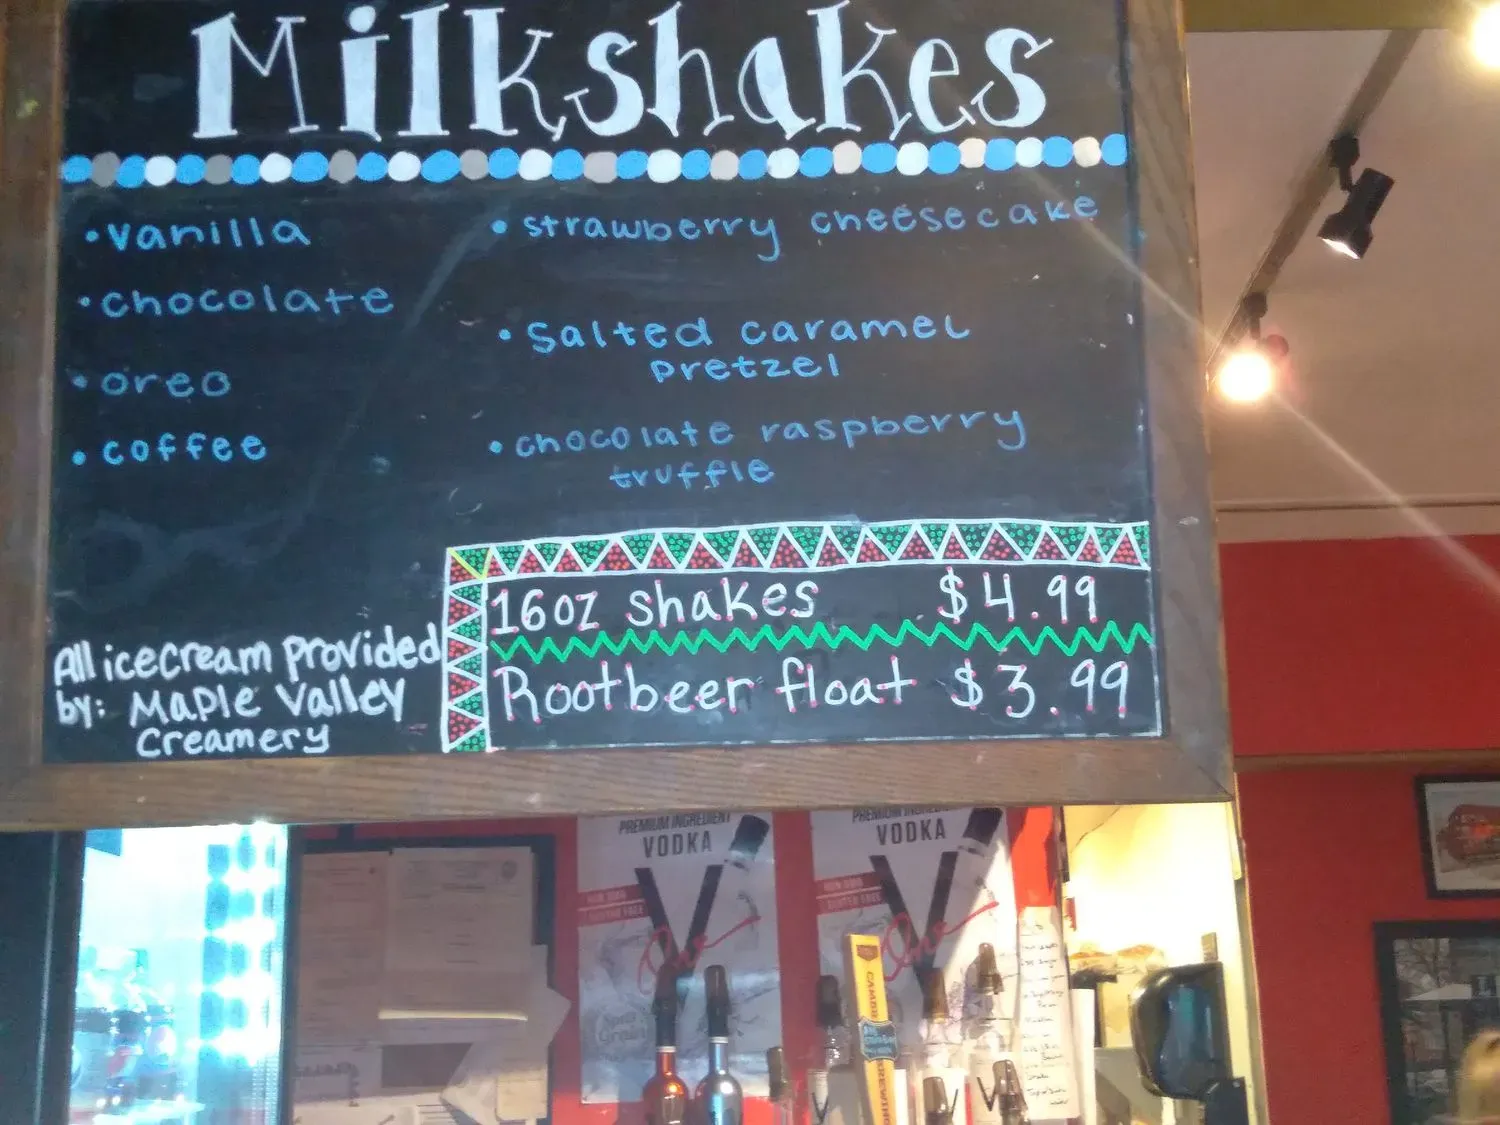 Milkshakes
• vanilla
• chocolate
• oreo
• coffee
• strawberry cheesecake
• Salted caramel
pretzel
• chocolate raspberry
truffle
16oz shakes $4.99
Rootbeer float $3.99
All icecream provided
by: Maple Valley
Creamery
PREMIUM INGREDIENT
VODKA
V
One
PREMIUM INGREDIENT
VODKA
V
One